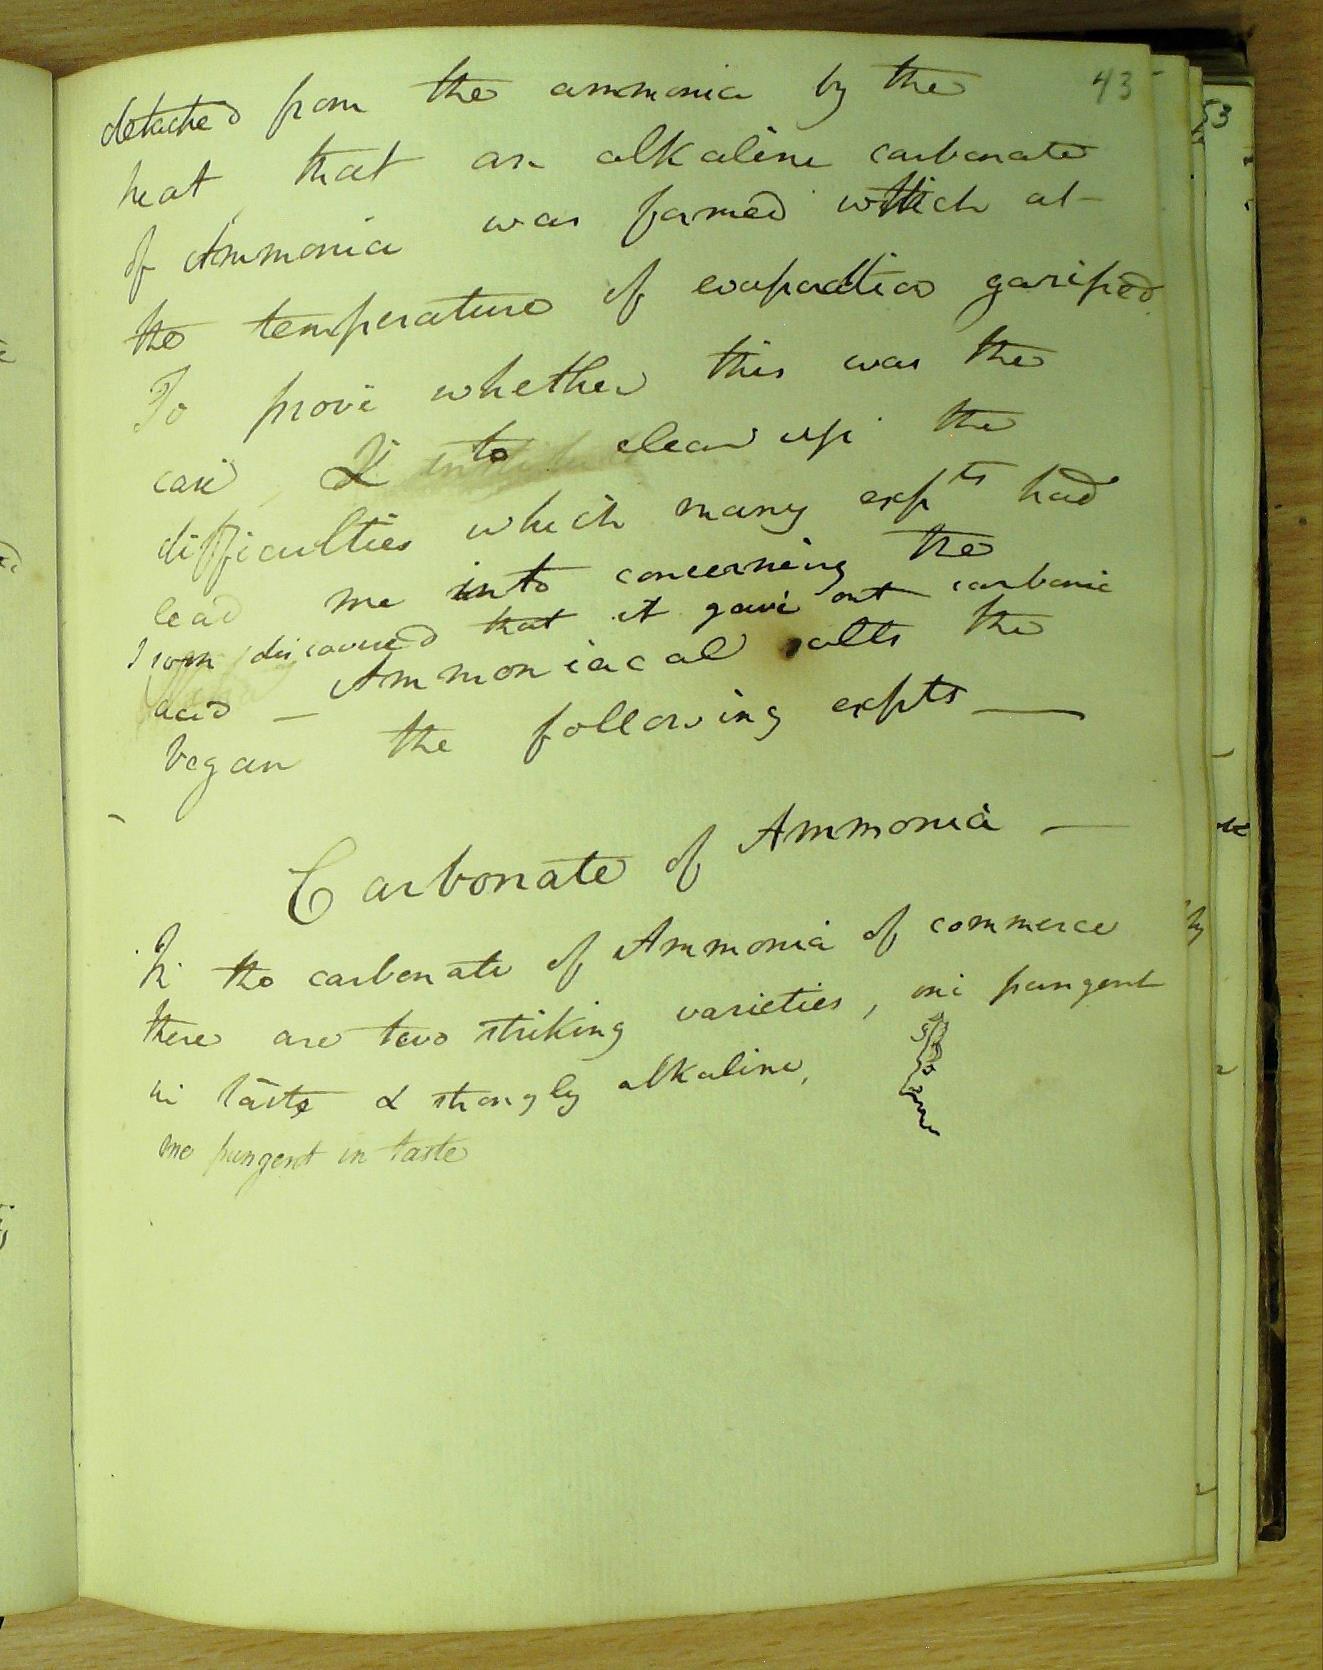 43
detached from the ammonia by the
heat, that an alkaline carbonate
of Ammonia was formed which at
the temperature of evaporation gasified.
To prove whether this was the
case, & to clear up the
difficulties which many expts had
lead me into concerning the
I soon discovered that it gave out carbonic
acid — Ammoniacal salts the
began the following expts —
Carbonate of Ammonia —
In the carbonate of Ammonia of commerce
there are two striking varieties, one pungent
in taste & strongly alkaline,
one pungent in taste
53